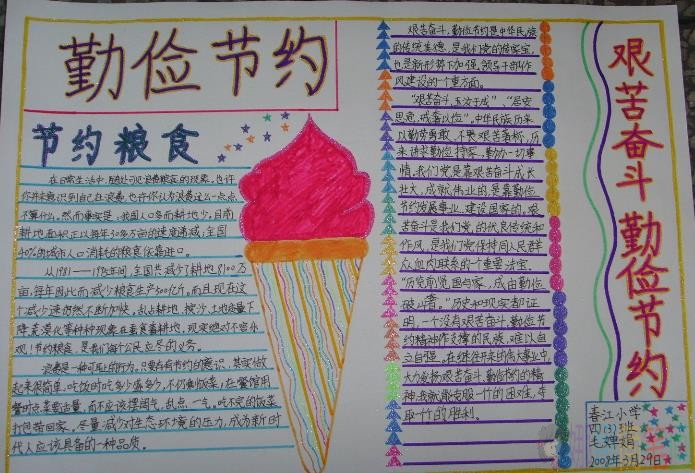 勤俭节约
节约粮食
在日常生活中,随处可见浪费粮食的现象。也许
你并未意识到自己在浪费,也许你认为浪费这么一点点
不算什么。然而事实是:我国人口多而耕地少,目前
耕地面积正以每年30多万亩的速度递减,全国
40%的城市人口消耗的粮食依靠进口。
从1981——1985年间,全国共减少了耕地8100万
亩,每年因此而减少粮食生产500亿斤,而且现在这
个减少速仍然不断加快,乱占耕地
现实绝对不容乐
观!节约粮食,是我们每个公民应尽的义务。
浪费是一种可耻的行为,只要存有节约的意识,其实做
起来很简单:吃饭时吃多少盛多少,不扔剩饭菜;在餐馆用
餐时点菜要适量,而不应该摆阔气,乱点一气;吃不完的饭菜
打包带回家。尽量减少对生态环境的压力,成为新时
代人应该具备的一种品质。
艰苦奋斗,勤俭节约是中华民族
的传统美德,是我们党的传家宝,
也是新形势下加强领导干部作
风建设的一个重方面。
“艰苦奋斗,玉汝于成”,“居安
思危,戒奢以俭”。中华民族历来
以勤劳勇敢、不畏艰苦著称,历
来讲求勤俭持家,勤办一切事
情。我们党是靠艰苦奋斗成长
壮大,成就伟业的,是靠勤俭
节约发展事业、建设国家的。艰
苦奋斗是我们党的优良传统和
作风,是我们党保持同人民群
众血肉联系的一个重要法宝。
“历览前贤国与家,成由勤俭
破由奢。”历史和现实都证
明,一个没有艰苦奋斗、勤俭节
约精神作支撑的民族,难以自
立自强。在继往开来的伟大事业中,
大力发扬艰苦奋斗、勤俭节约的精
神,我就能克服一个的困难,夺
取一个的胜利。
艰苦奋斗 勤俭节约
春江小学
四(3)班
毛婵娟
2008年3月29日